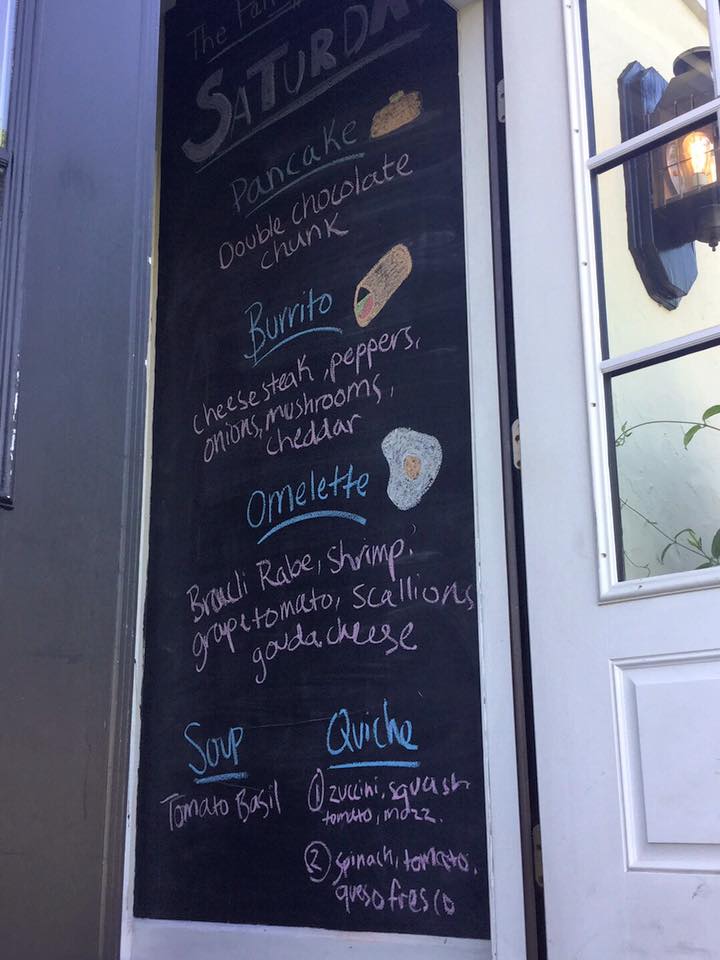 The
SATURDAY
Pancake
Double chocolate
chunk
Burrito
cheesesteak, peppers,
onions, mushrooms,
cheddar
Omelette
Brocli Rabe, shrimp,
grape tomato, scallions
gouda cheese
Soup
Tomato Basil
Quiche
① zuccini, squash
tomato, mozz.
② spinach, tomato,
queso fresco